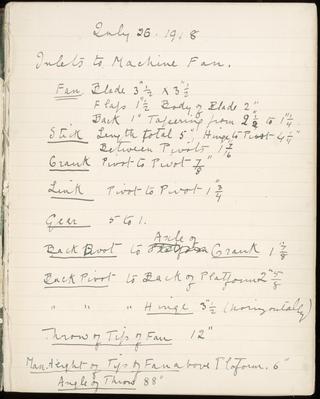 July 26. 1918
Inlets to Machine Fan.
Fan Blade 3"½ x 3"½
Flaps 1"½ Body of Blade 2"
Back 1" Tapering from 2"½ to 1"¼
Stick Length total 5" Hinge to Pivot 4¼"
Between Pivots 1"7/16
Crank Pivot to Pivot 7/8"
Link Pivot to Pivot 1"¾
Gear 5 to 1.
Angle of
Back Pivot to Crank 1"7/8
Back Pivot to Back of Platform 2"5/8
" " " Hinge 3"½ (horizontally)
Throw of Tips of Fan 12"
Max. Height of Tips of Fan above Platform. 6"
Angle of Throw 88°